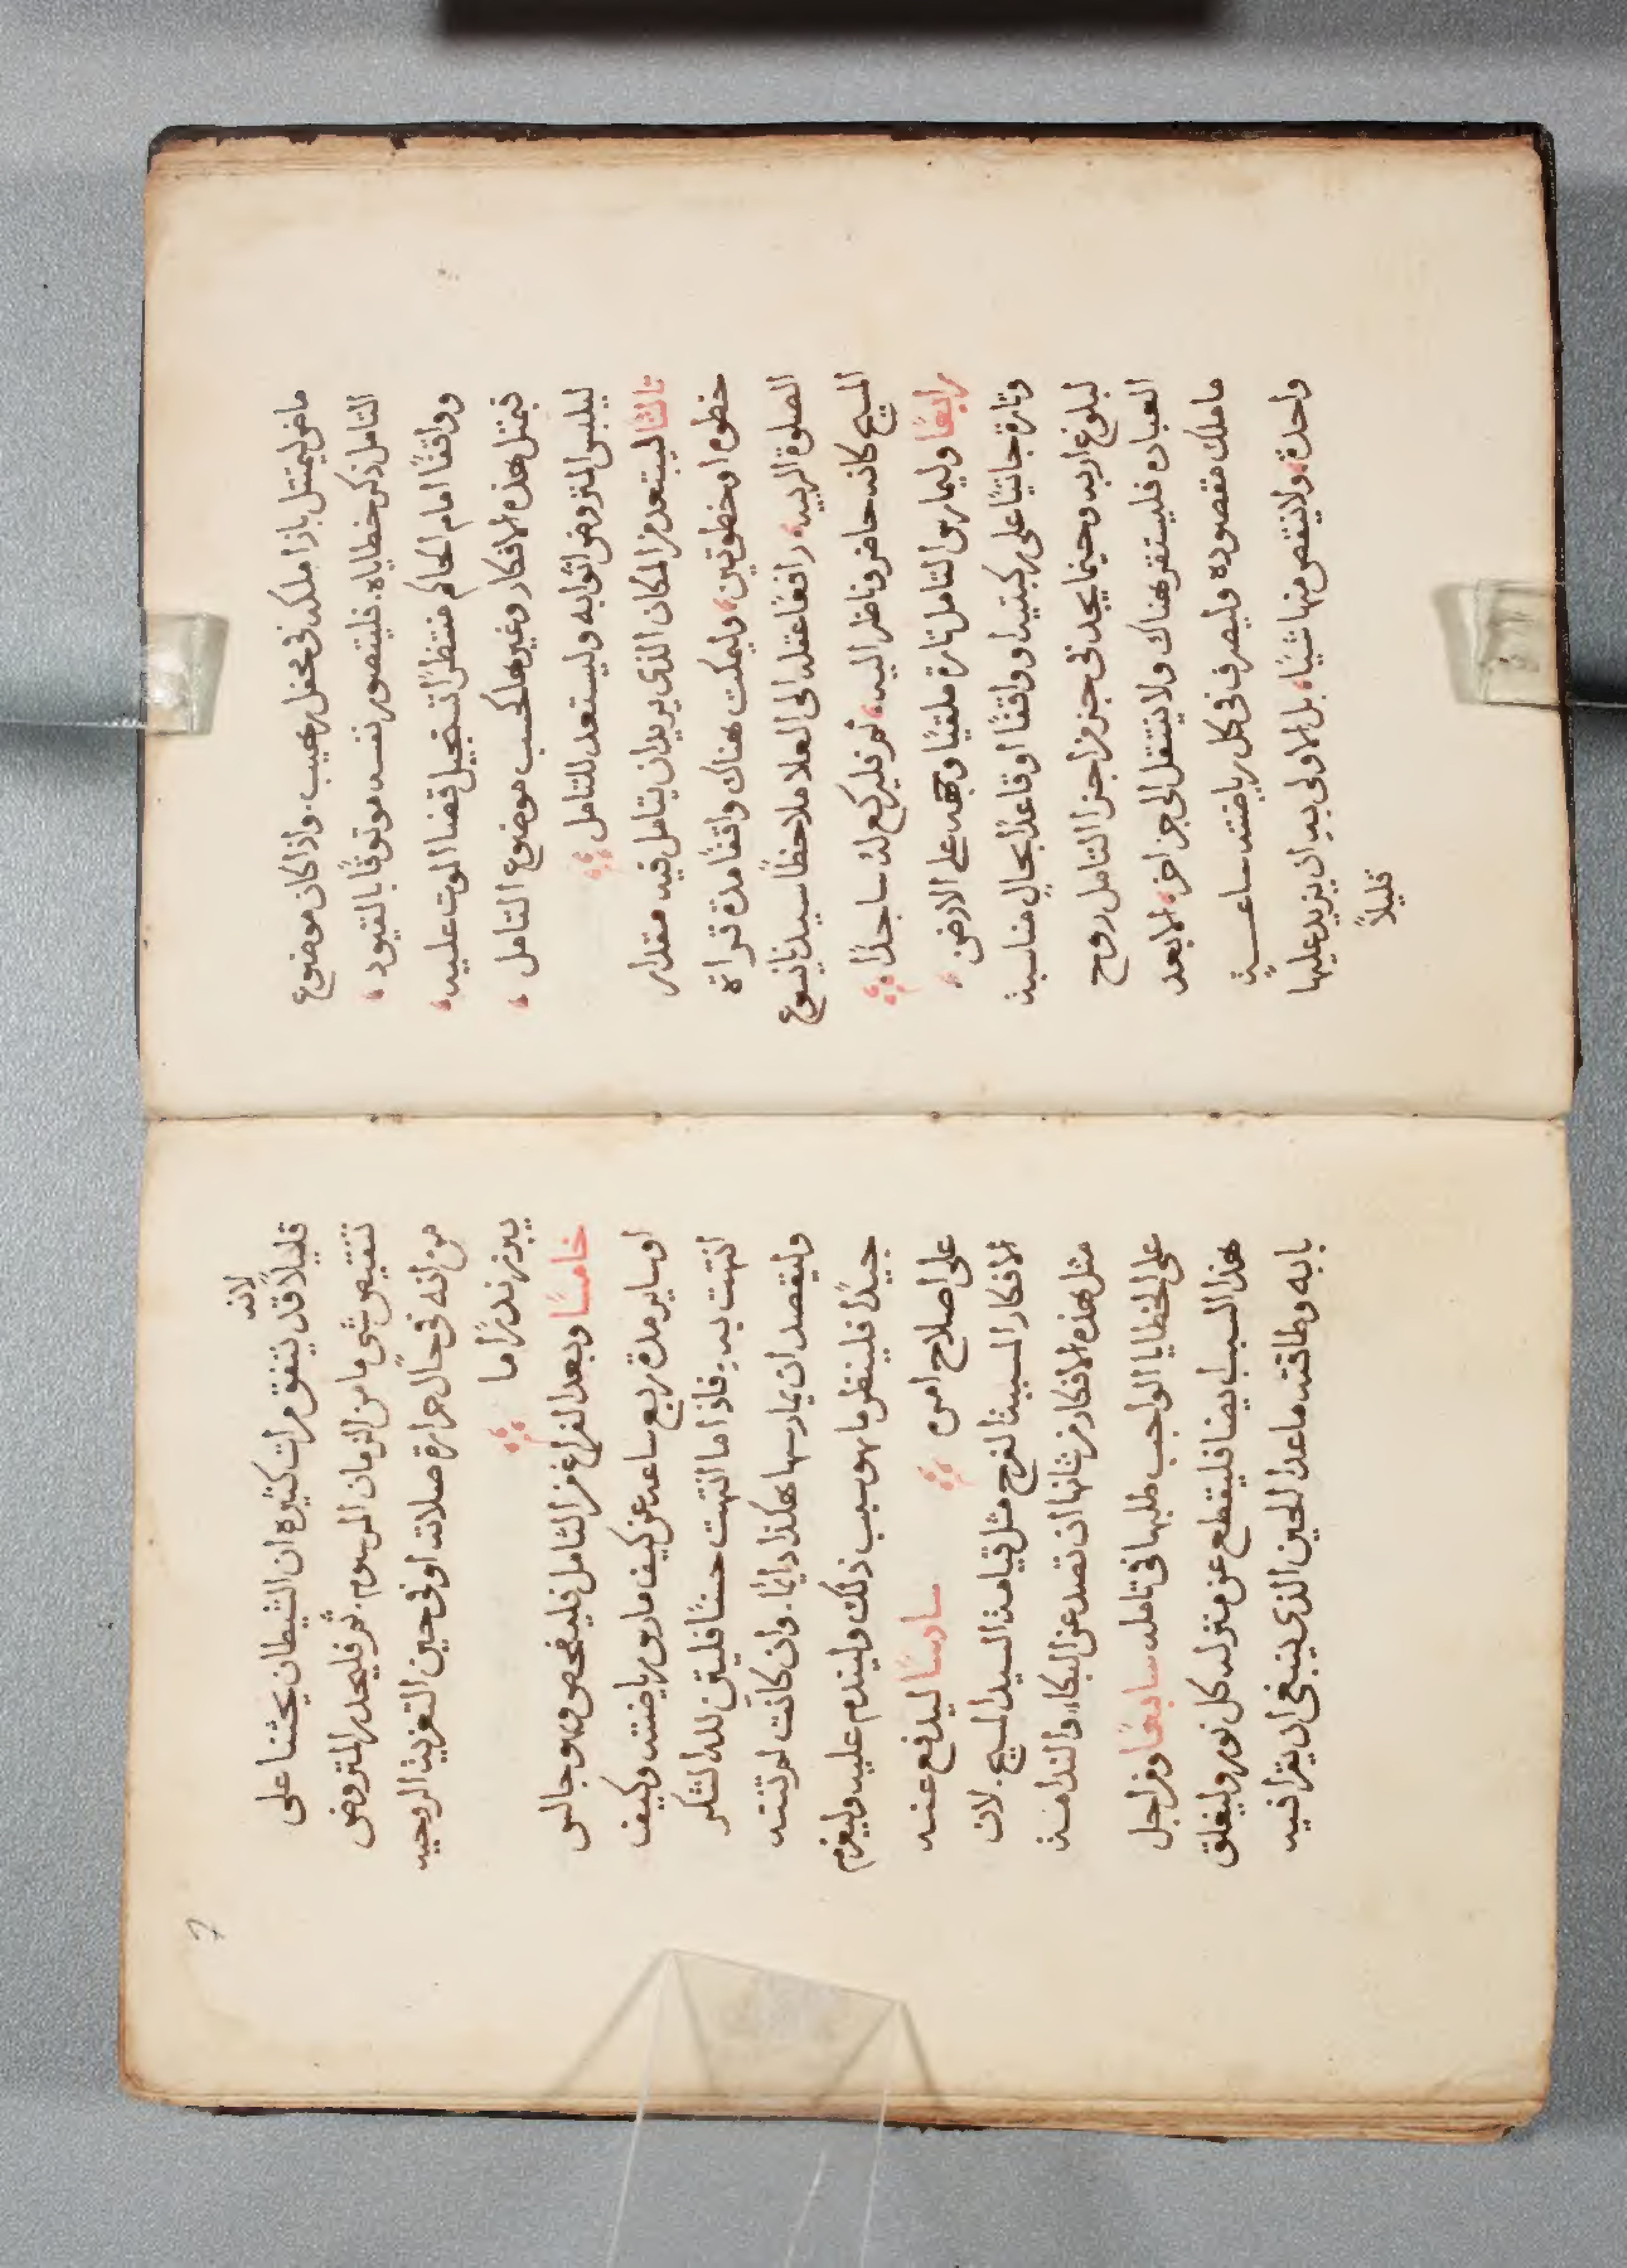 ماضٍ ليمتثل بازا ملكه في محفل رهيب. واذا كان موضوع
التامل ذكر خطاياه. فليتصور نفسه موثوقًا بالقيود،
وواقفًا امام الحاكم منتظرًا تسجيل قضا الموت عليه،
فبمثل هذه الافكار وغيرها كحسب موضوع التامل،
ليلبس المتروض اثوابه وليستعد للتامل
ثالثًا ليبتعد من المكان الذي يريد ان يتامل فيه مقدار
خطوه او خطوتين، وليمكث هناك واقفًا مدة قراة
الصلوة الربيه، رافعًا عقله الى العلا ملاحظًا سيدنا يسوع
المسيح كانه حاضر وناظر اليه، ثم فليركع له ساجدًا
رابعًا وليمارس التامل تارة ملقيًا وجهه على الارض،
وتارة جاثيًا على ركبتيه او واقفًا او قاعدًا بحالٍ مناسبة
لبلوغ اربه وحيثما يجد في جز من اجزا التامل روح
العباده فليستقر هناك ولا ينتقل الى جز اخر، الا بعد
ما ملك مقصوده وليصرف في كل رياضته ساعة
واحدة، ولا ينقص منها شيًا، بل الاولى به ان يزيد عليها
قليلاً
لانه
قليلاً قد يتفق مرات كثيره ان الشيطان يحثنا على
تنقيص شي ما من الزمان المرسوم. ثم فليحذر المتروض
من انه في حال حرارة صلاته او في حين التعزية الروحيه
يبرز نذرًا ما
خامسًا وبعد الفراغ من التامل فليفحص وهو جالس
او ساير مدة ربع ساعه عن كيف مارس رياضته وكيف
انتهت به. فاذا ما انتهت حسنًا فليقرن لله الشكر
وليقصد ان يمارسها هكذا دايمًا. وان كانت لم تنته
جيدًا فلينظر ما هو سبب ذلك وليندم عليه وليعزم
على اصلاح امره سادسًا ليدفع عنه
الافكار المسببة الفرح مثل قيامة السيد المسيح. لان
مثل هذه الافكار من شانها ان تصد عن البكاء والندامة
على الخطايا الواجب طلبها في تامله سابعًا ومن اجل
هذا السبب ايضا فليقطع عن منزله كل نور وليغلق
بابه وطاقته ما عدا الحين الذي ينبغي ان يقرا فيه